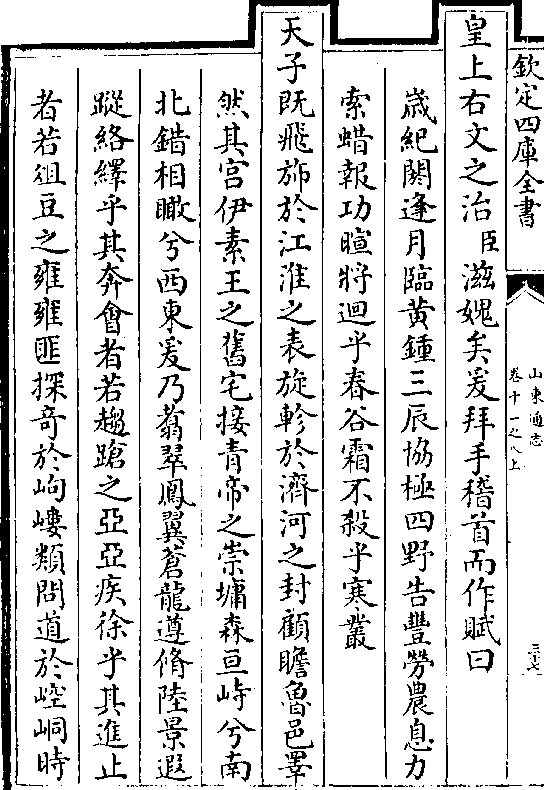 欽定四庫全書
山東通志
卷十一之八上
皇上右文之治臣滋媿矣爰拜手稽首而作賦曰
歳紀閼逢月臨黄鍾三辰協極四野告豐勞農息力
索蜡報功暄將迴乎春谷霜不殺乎寒叢
天子旣飛斾於江淮之表旋軫於濟河之封顧瞻魯邑睪
然其宫伊素王之舊宅接青帝之崇墉森亘峙兮南
北錯相瞰兮西東爰乃翥翠鳳翼蒼龍遵脩陸景遐
蹤絡繹乎其奔㑹者若趨蹌之亞亞疾徐乎其進止
者若俎豆之雍雍匪探竒於岣嶁類問道於崆峒時